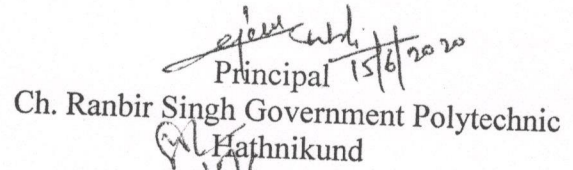 15/6/2020
Principal
Ch. Ranbir Singh Government Polytechnic
Hathnikund